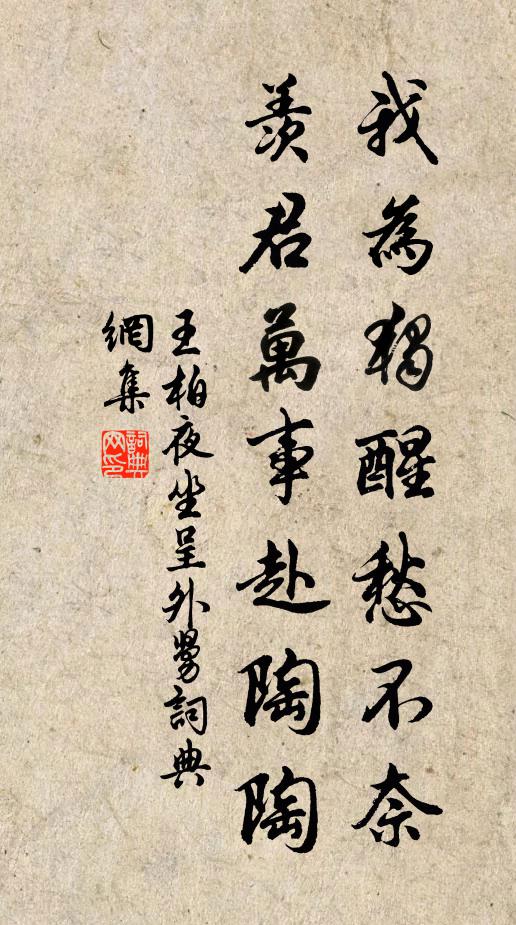 我為獨醒愁不奈
羨君萬事赴陶陶
王柏夜坐呈外舅詞典
網集
詞典網印